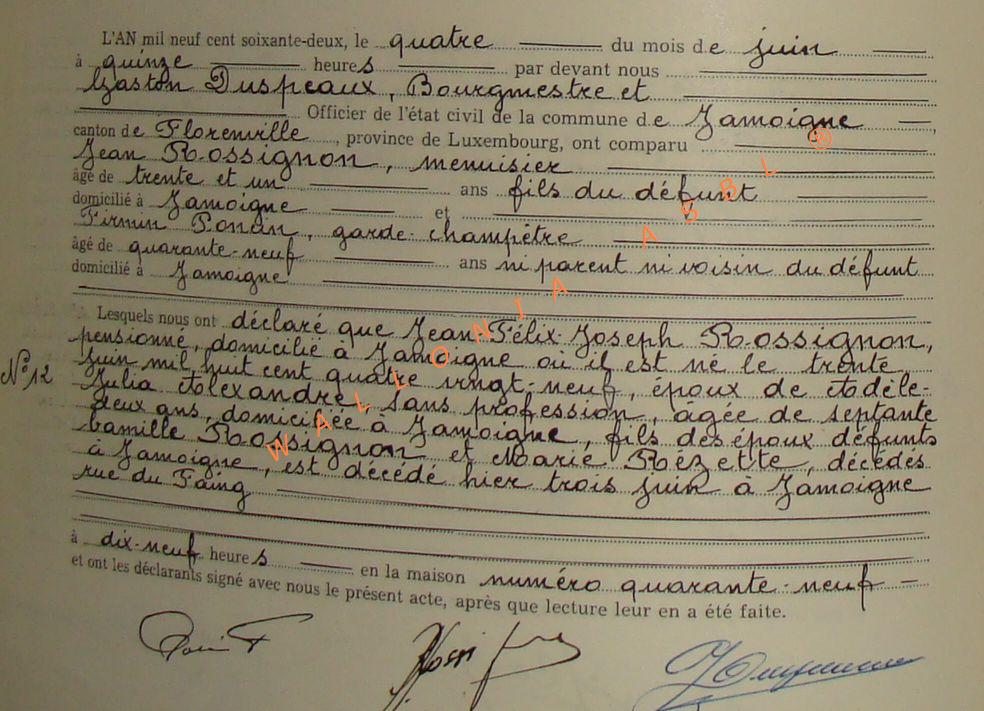 L'AN mil neuf cent soixante-deux, le quatre du mois de juin
à quinze heures par devant nous
Gaston Duspeaux, Bourgmestre et
Officier de l'état civil de la commune de Jamoigne,
canton de Florenville, province de Luxembourg, ont comparu
Jean Rossignon, menuisier
âgé de trente et un ans fils du défunt
domicilié à Jamoigne et
Firmin Ponan, garde-champêtre
âgé de quarante-neuf ans ni parent ni voisin du défunt
domicilié à Jamoigne
Lesquels nous ont déclaré que Jean-Félix-Joseph Rossignon,
pensionné, domicilié à Jamoigne où il est né le trente
N° 12
juin mil huit cent quatre vingt-neuf, époux de Adèle-
Julia Alexandre, sans profession, agée de septante
deux ans, domiciliée à Jamoigne, fils des époux défunts
Camille Rossignon et Marie Rézette, décédés
à Jamoigne, est décédé hier trois juin à Jamoigne
rue du Faing
à dix-neuf heures en la maison numéro quarante-neuf
et ont les déclarants signé avec nous le présent acte, après que lecture leur en a été faite.
WALLONIA ASBL ®